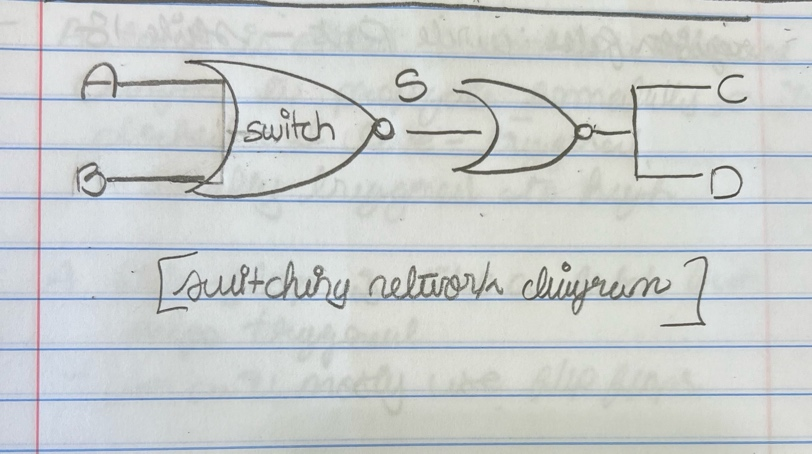 A
S
C
switch
B
D
[switching network diagram]